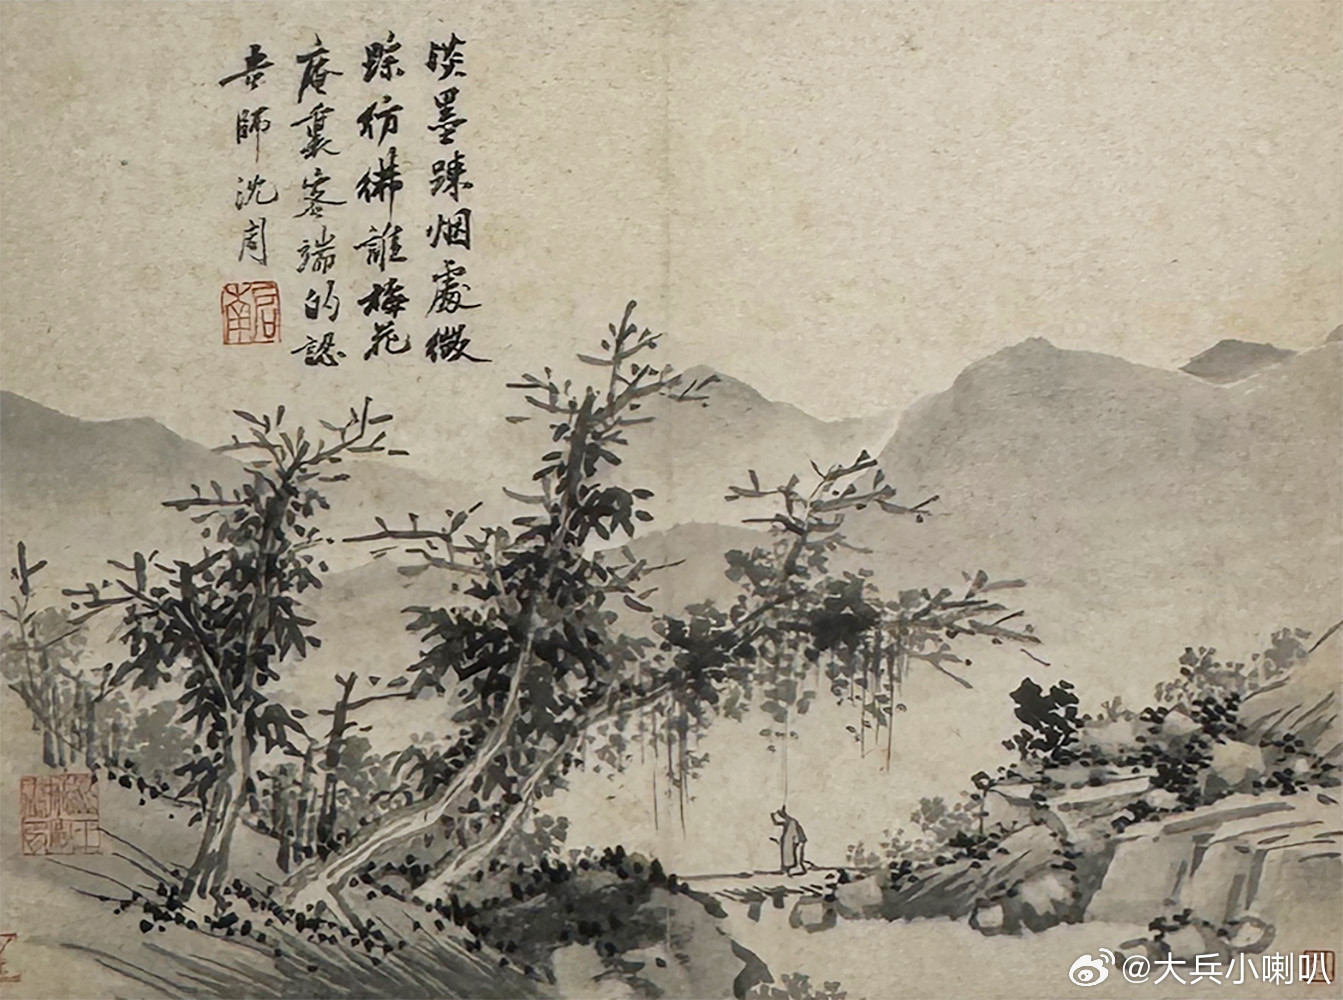 淡墨踈烟處微
踪彷彿誰梅花
庵裏客端的認
吾師沈周
启南
@大兵小喇叭